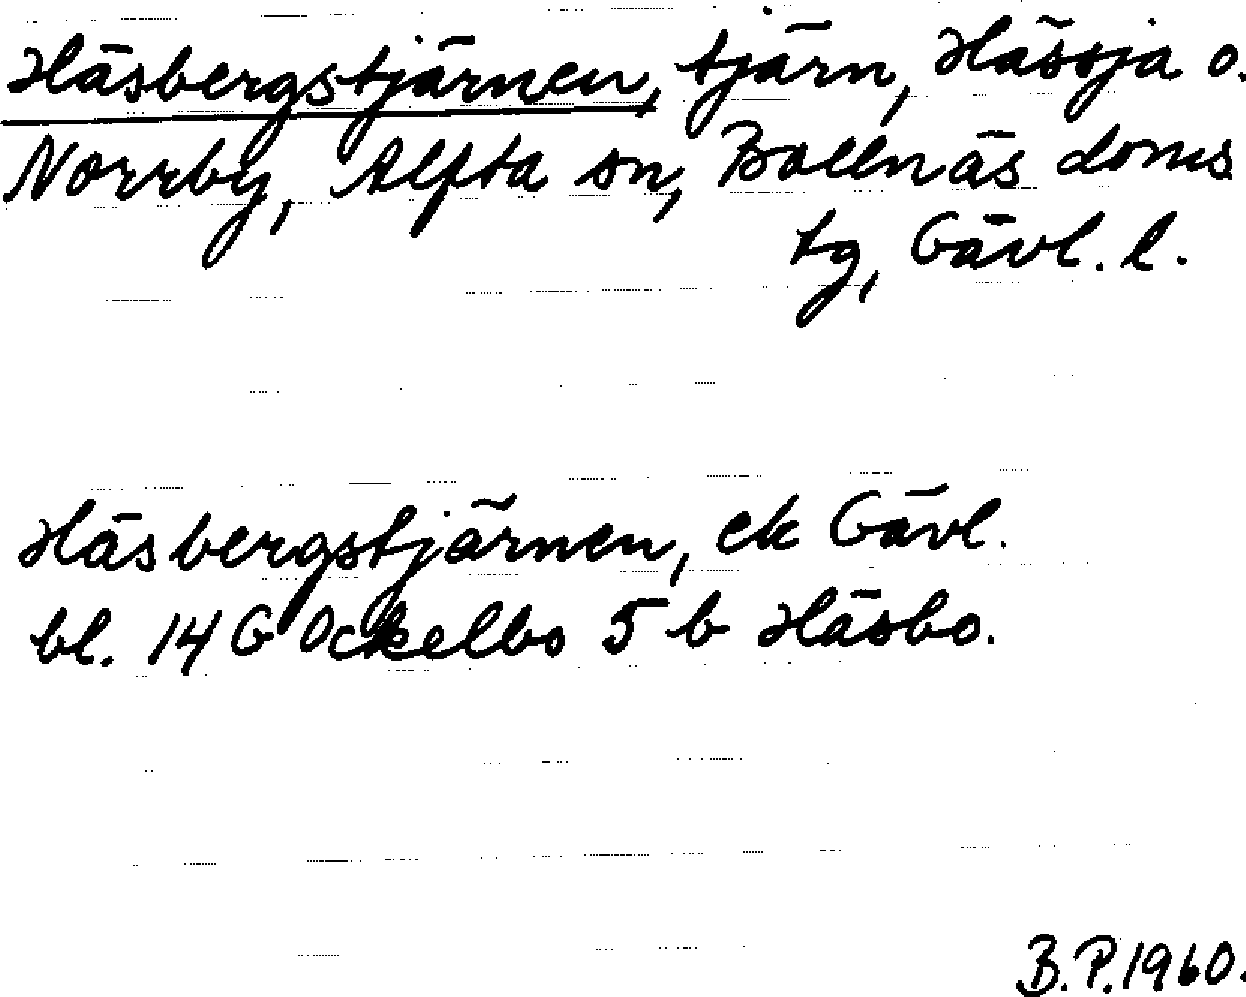 Häsbergstjärnen, tjärn, Hässja o.
Norrby, Alfta sn, Bollnäs doms
tg, Gävl. l.
Häsbergstjärnen, ek Gävl.
bl. 14 G Ockelbo 5 b Häsbo.
B.P. 1960.